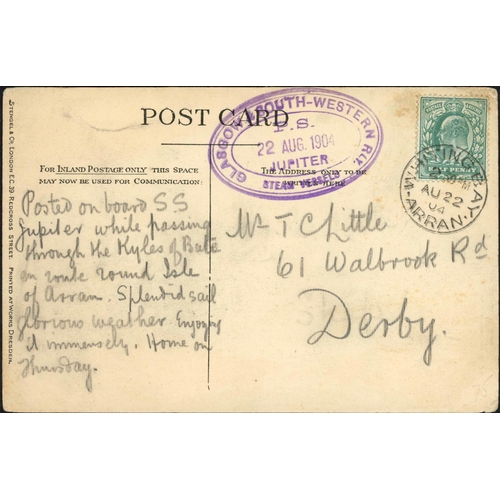 POST CARD
GLASGOW & SOUTH-WESTERN RLY.
P.S.
22 AUG. 1904
JUPITER
STEAM VESSELS
HALFPENNY
WHITING BAY
AU 22
04
ARRAN
FOR INLAND POSTAGE ONLY THIS SPACE
MAY NOW BE USED FOR COMMUNICATION.
THE ADDRESS ONLY TO BE
WRITTEN HERE
Posted on board SS
Jupiter while passing
through the Kyles of Bute
en route round Isle
of Arran. Splendid sail
glorious weather. Enjoying
it immensely. Home on
Thursday.
Mr T C Little
61 Walbrook Rd
Derby.
STENGEL & Co LONDON E.C. 39 REDCROSS STREET. PRINTED AT WORKS DRESDEN.